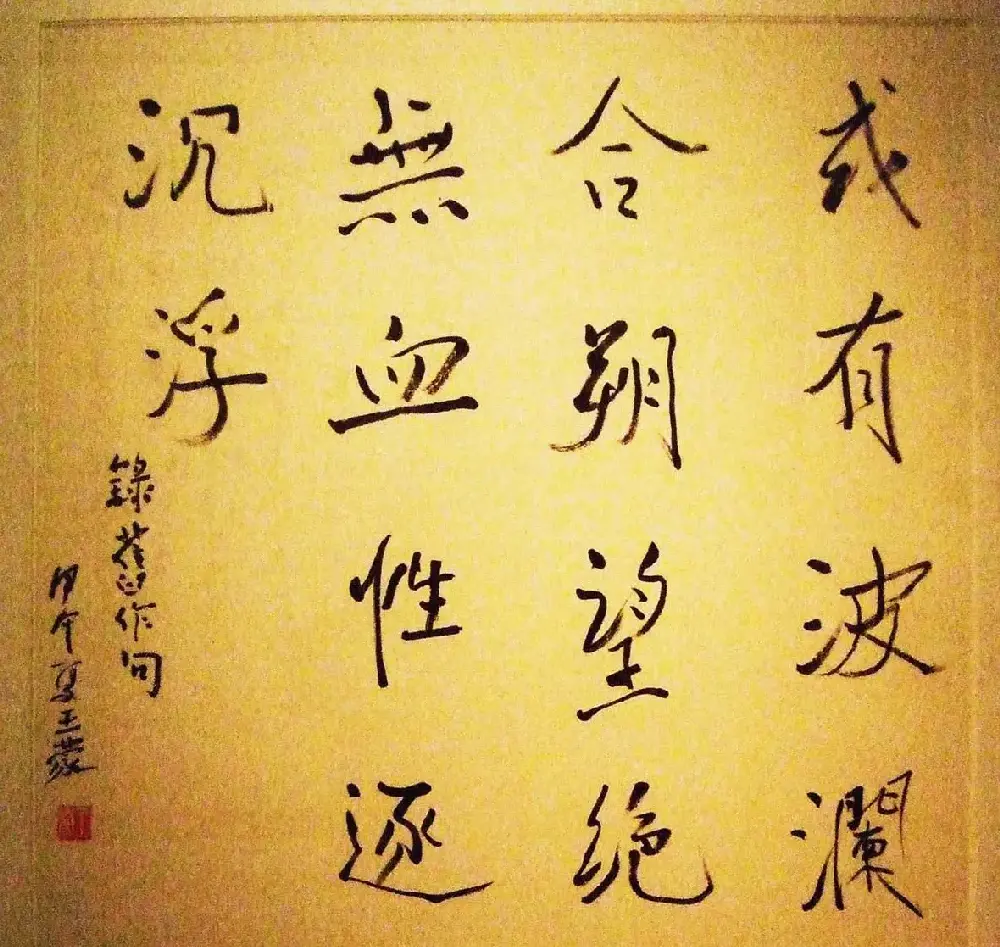 或有波瀾
合朔望絶
無血性逐
沉浮
錄舊作句
甲午夏王蒙